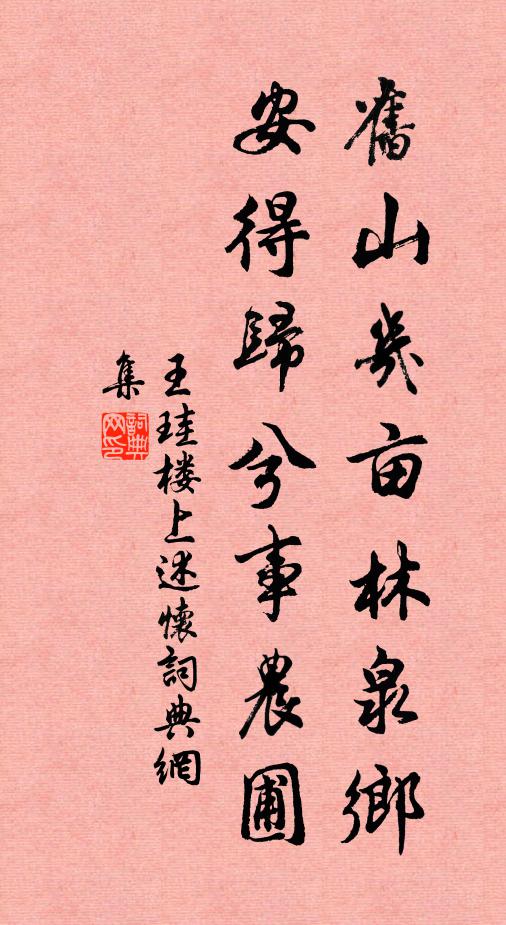 舊山幾亩林泉鄉
安得歸兮事農圃
王珪楼上述懷詞典網
集
詞典
网印